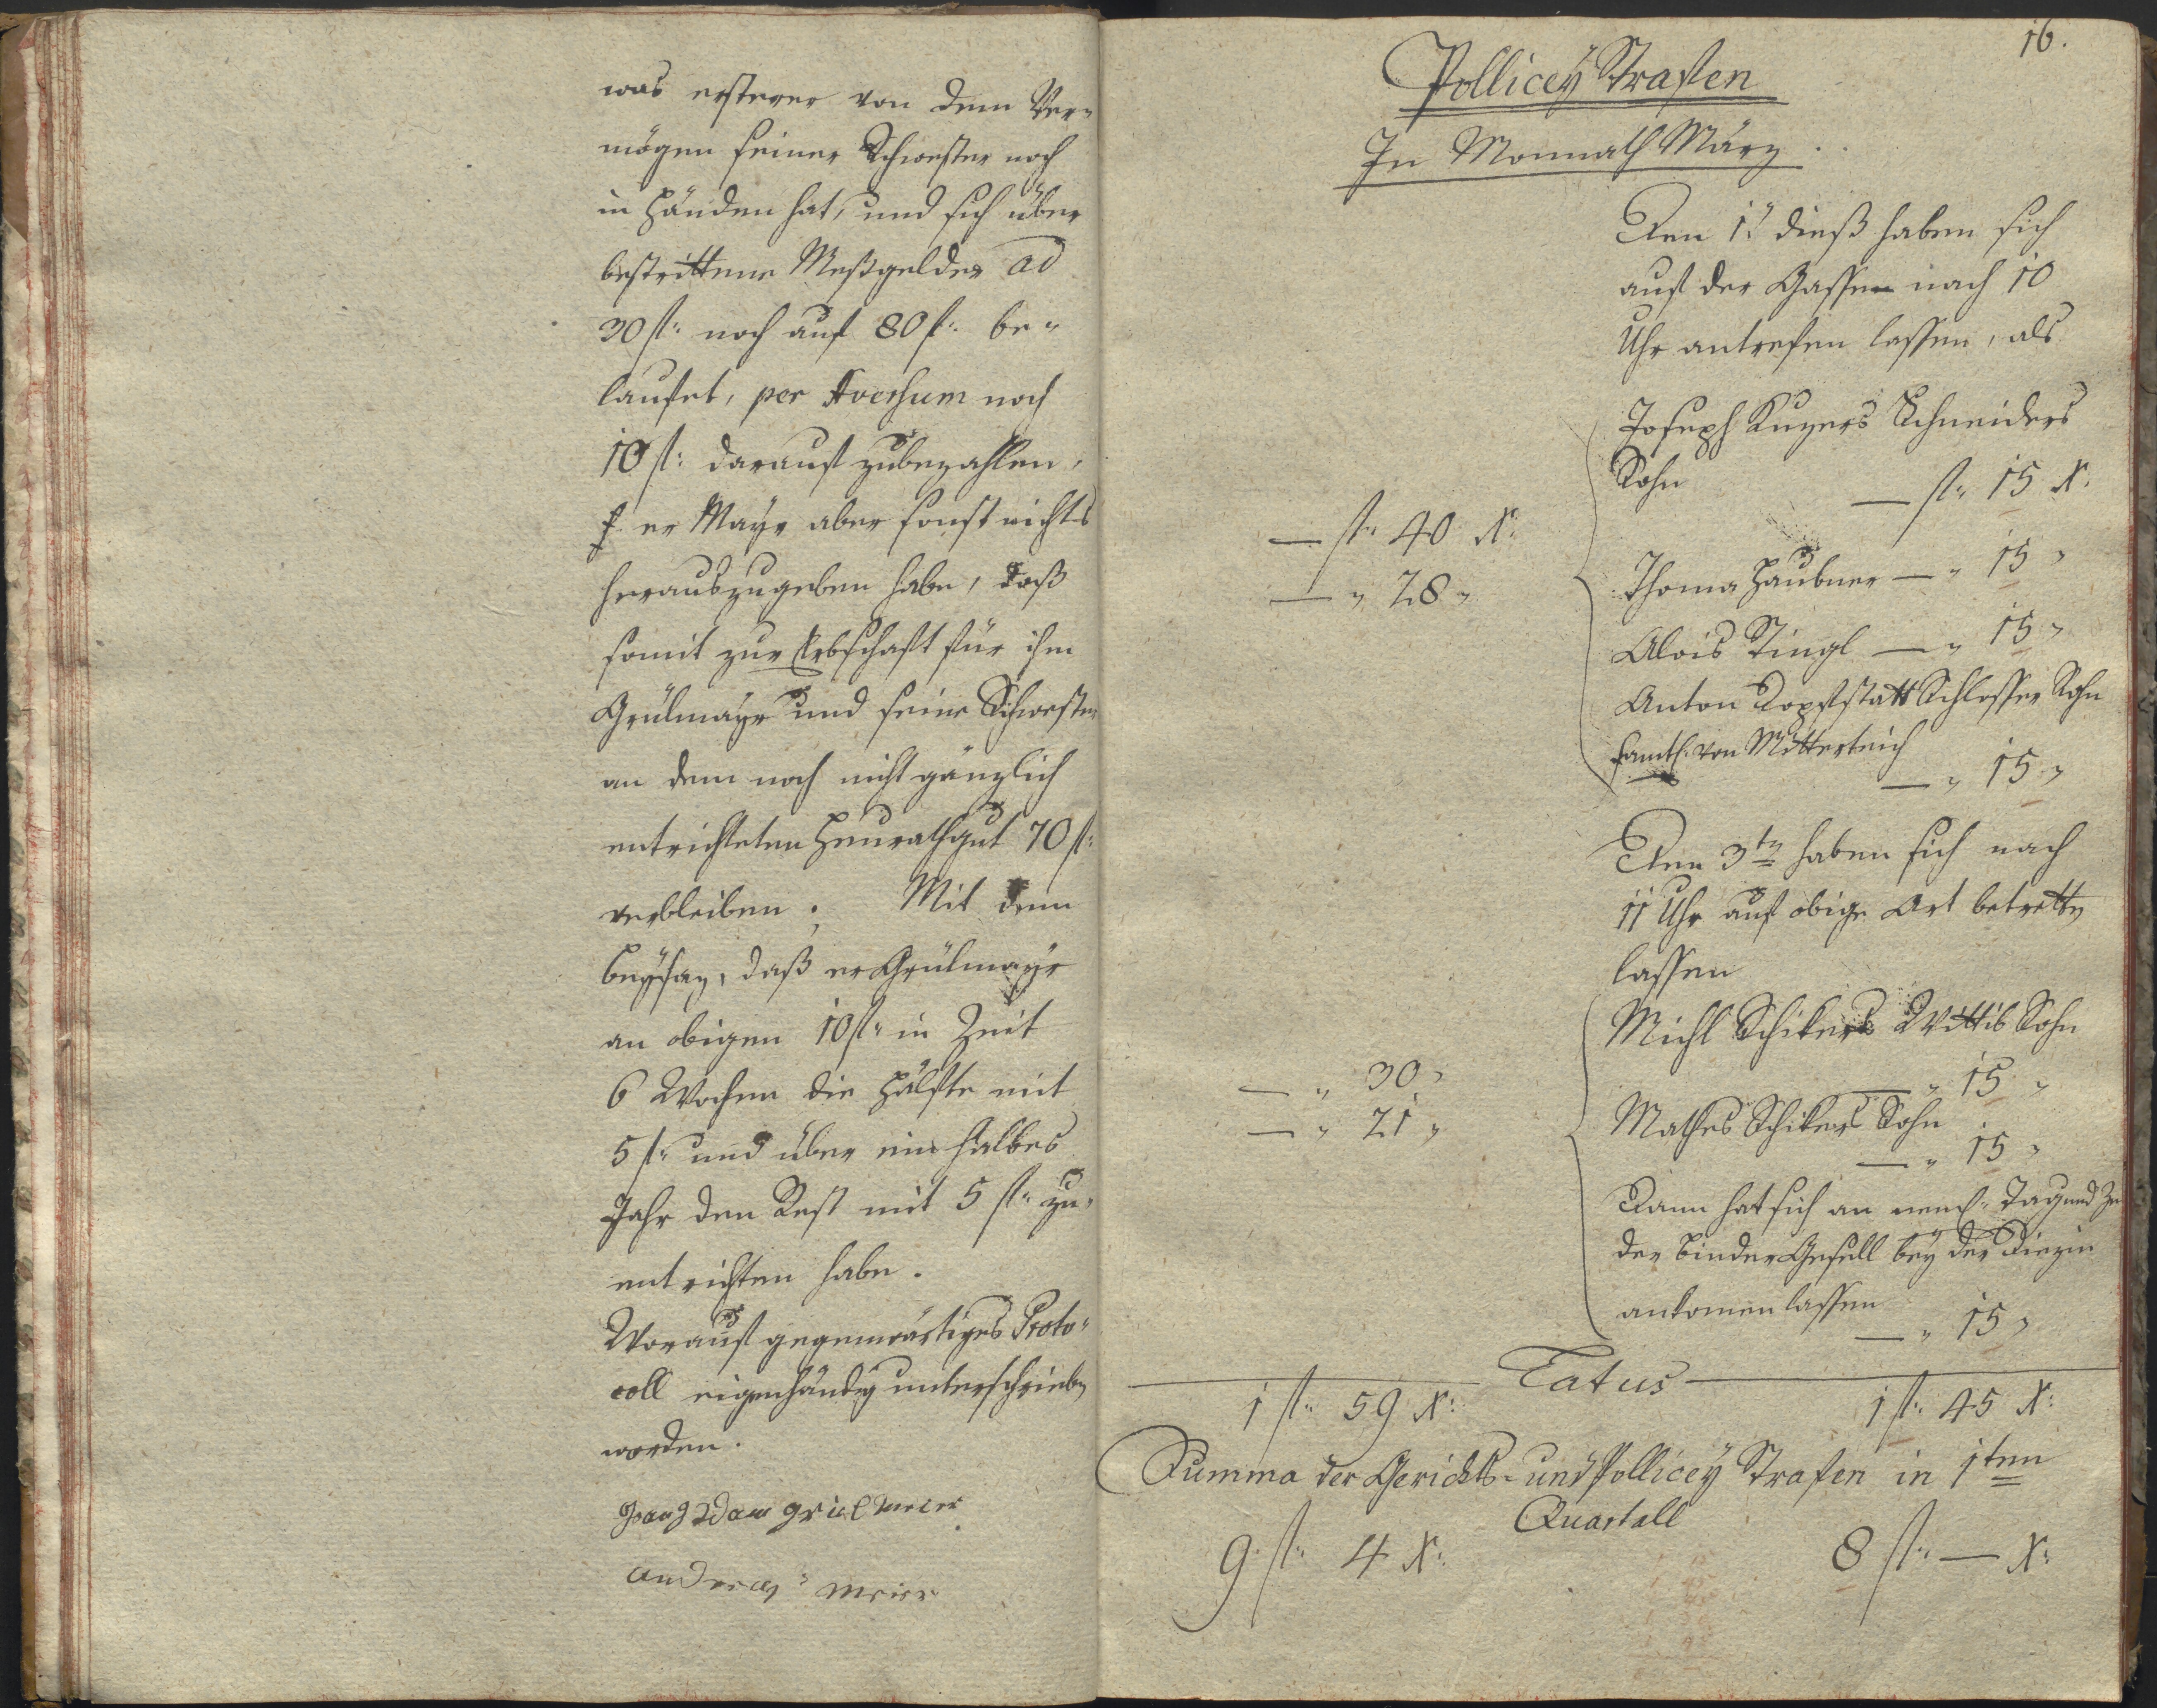 was ersterer von dem Ver-
mögen seiner Schwester noch
in Händen hat, und sich über
bestrittene Meßgelder ad
30 fl: noch auf 80 fl: be-
laufet, per Aversum noch
10 fl: darauf zubezahlen,
er Mayr aber sonst nichts
herauszugeben habe, daß
somit zur Erbschaft für ihm
Grülmayr und seine Schwester
an dem noch nicht gänzlich
entrichteten Heurathgut 70 fl:
verbleiben. Mit dem
Beysaz, daß er Grülmayr
an obigen 10 fl: in Zeit
6 Wochen die Hälfte mit
5 fl: und über ein halbes
Jahr den Rest mit 5 fl: zu-
entrichten habe.
Worauf gegenwärtiges Proto-
coll eigenhändig unterschrieben
worden.
adam grielmeier
andreas meier
16.
Pollicey Strafen
In Monnath März
Den 1t dieß haben sich
auf der Gassen nach 10
Uhr antrefen lassen, als
Joseph Kuzers Schneiders
Sohn — fl: 15 x:
— fl: 40 x:
— " 28 "
Thoma Haubner — " 15 "
Alois Stingl — " 15 "
Anton Dopfstatt Schlosser Sohn
samtl: von Mitterteich
— " 15 "
Den 3ten haben sich nach
11 Uhr auf obige Art betretten
lassen
Michl Schikers Wittib Sohn
— " 15 "
— " 30 "
— " 21 "
Mathes Schikers Sohn
— " 15 "
Dann hat sich an neml: Tag und
der Binder Gesell bey der
ankomen lassen
— " 15 "
Latus
1 fl: 59 x: 1 fl: 45 x:
Summa der Gerichts- und Pollicey Strafen in 1ten
Quartall
9 fl: 4 x: 8 fl: — x: